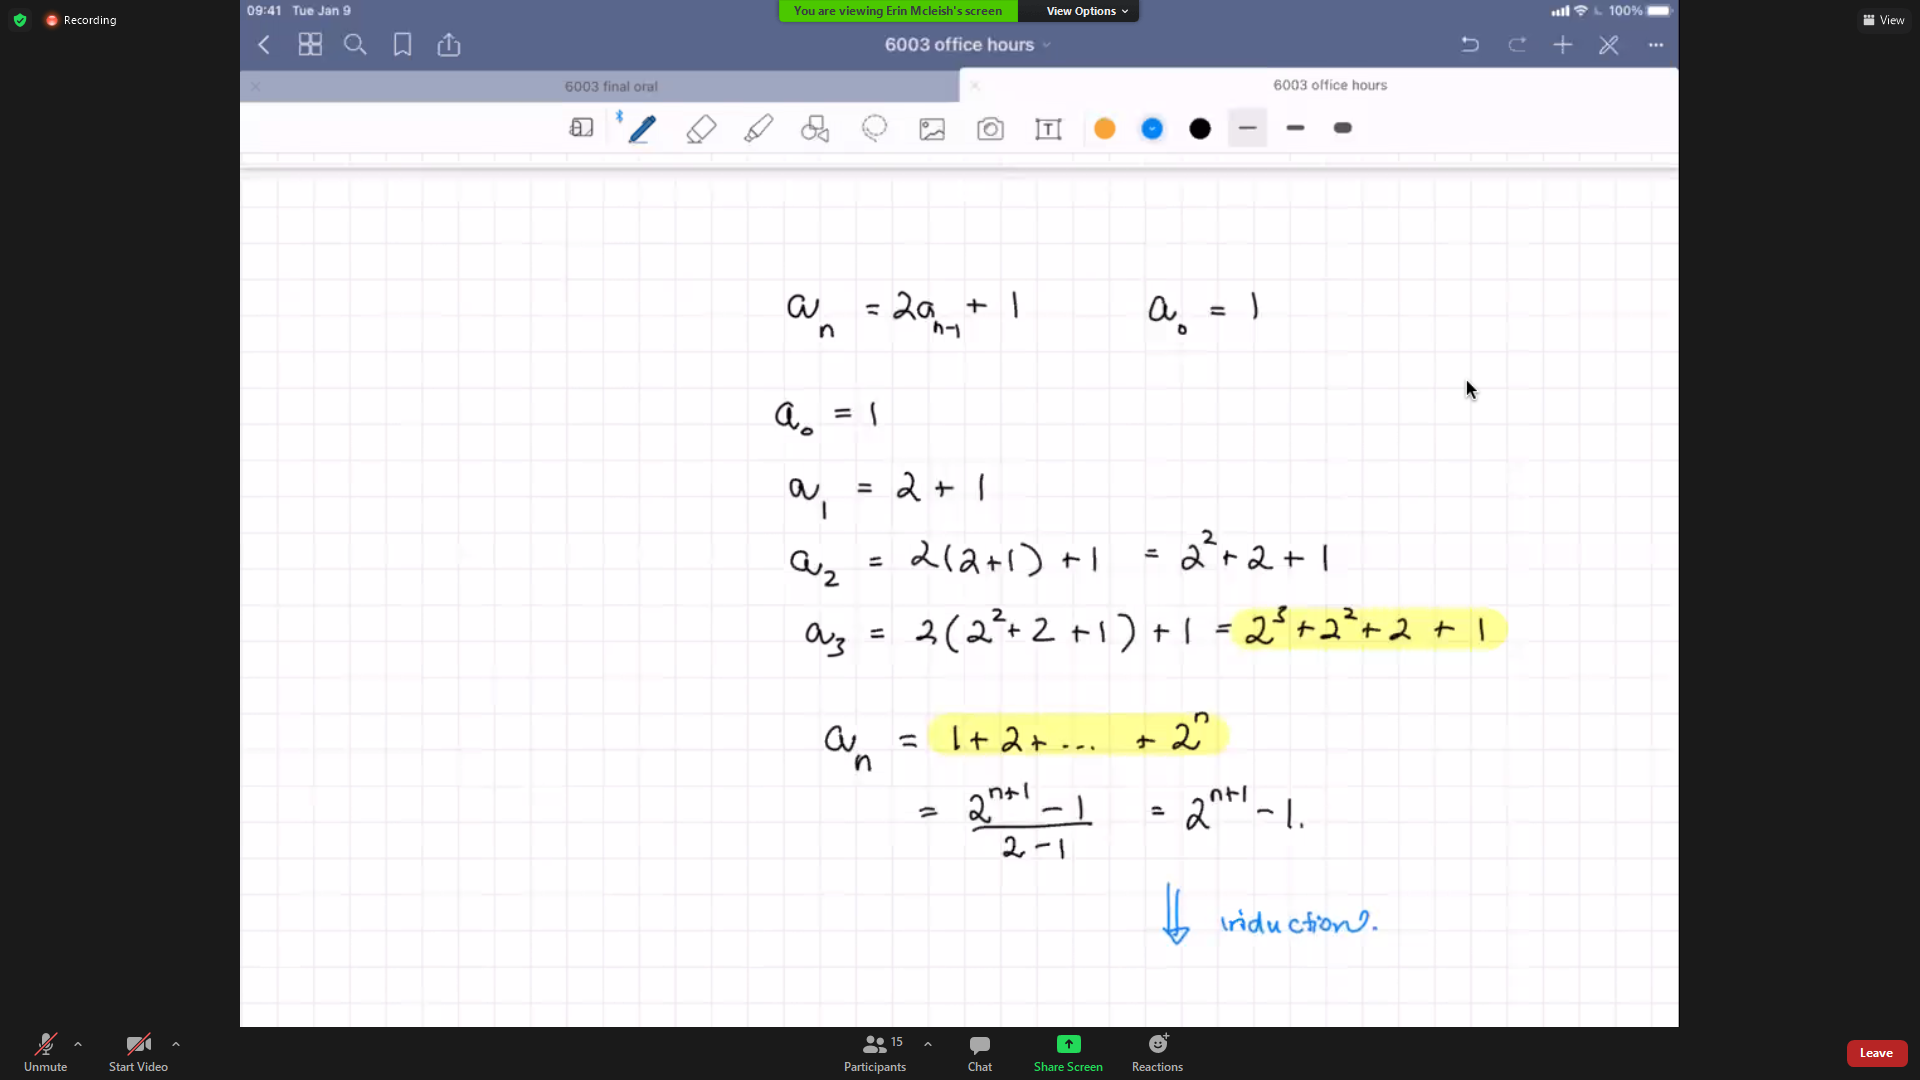 Recording
09:41 Tue Jan 9
You are viewing Erin Mcleish's screen
View Options
100%
View
6003 office hours
6003 final oral
6003 office hours
T
aₙ = 2aₙ₋₁ + 1    a₀ = 1
a₀ = 1
a₁ = 2 + 1
a₂ = 2(2+1) + 1 = 2² + 2 + 1
a₃ = 2(2² + 2 + 1) + 1 = 2³ + 2² + 2 + 1
aₙ = 1 + 2 + ... + 2ⁿ
= (2ⁿ⁺¹ − 1)/(2 − 1) = 2ⁿ⁺¹ − 1.
⇓ induction.
Unmute
Start Video
15
Participants
Chat
Share Screen
Reactions
Leave